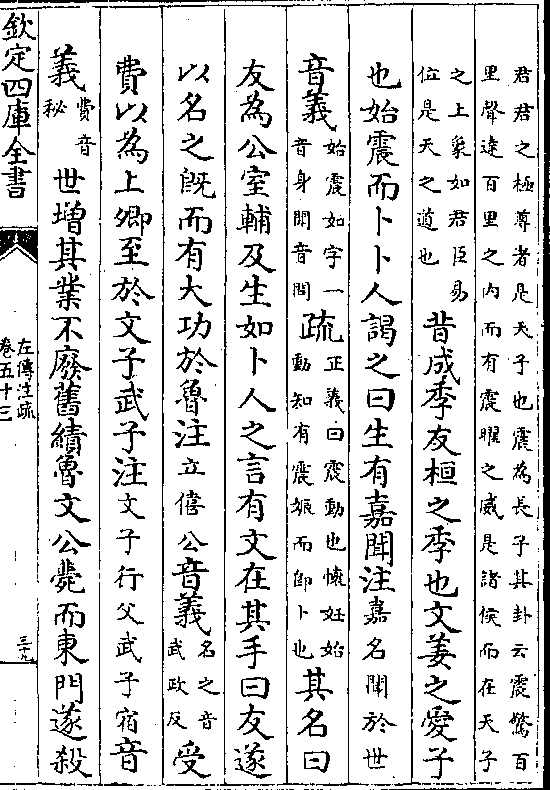 君君之極尊者是天子也震為長子其卦云震驚百
里聲達百里之內而有震曜之威是諸侯而在天子
之上象如君臣易
位是天之道也
昔成季友桓之季也文姜之愛子
也始震而卜卜人謁之曰生有嘉聞注嘉名聞於世
音義
始震如字一
音身聞音問
疏
正義曰震動也懷妊始
動知有震娠而即卜也
其名曰
友為公室輔及生如卜人之言有文在其手曰友遂
以名之既而有大功於魯注立僖公音義
名之音
武政反
受
費以為上卿至於文子武子注文子行父武子宿音
義
費音
秘
世增其業不廢舊績魯文公薨而東門遂殺
欽定四庫全書
左傳注疏
卷五十三
三十九